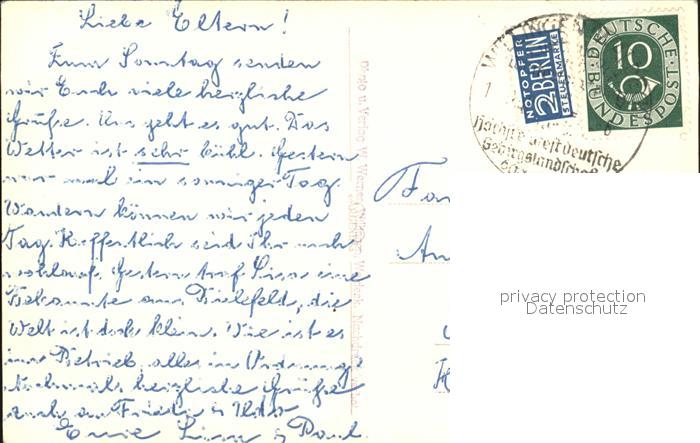 Liebe Eltern!
Zum Sonntag senden
wir Euch viele herzliche
Grüße. Uns geht es gut. Das
Wetter ist sehr kühl. Gestern
war mal ein sonniger Tag.
Wandern können wir jeden
Tag. Hoffentlich seid Ihr auch
wohlauf. Gestern traf Lisa eine
Bekannte aus Bielefeld, die
Welt ist doch klein. Wie ist es
im Betrieb, alles in Ordnung?
Nochmals herzliche Grüße
auch an Frieda & Udo
Eure Lisa & Paul
NOTOPFER
2 BERLIN
STEUERMARKE
DEUTSCHE
BUNDESPOST
10
Höchste westdeutsche
Gebirgslandschaft
Fa
An
H
privacy protection
Datenschutz